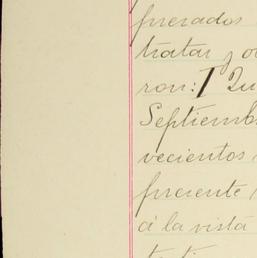 prerados
tratar y o
ron: 1 Qu
Septiemb
vecientos
presente
á la vista